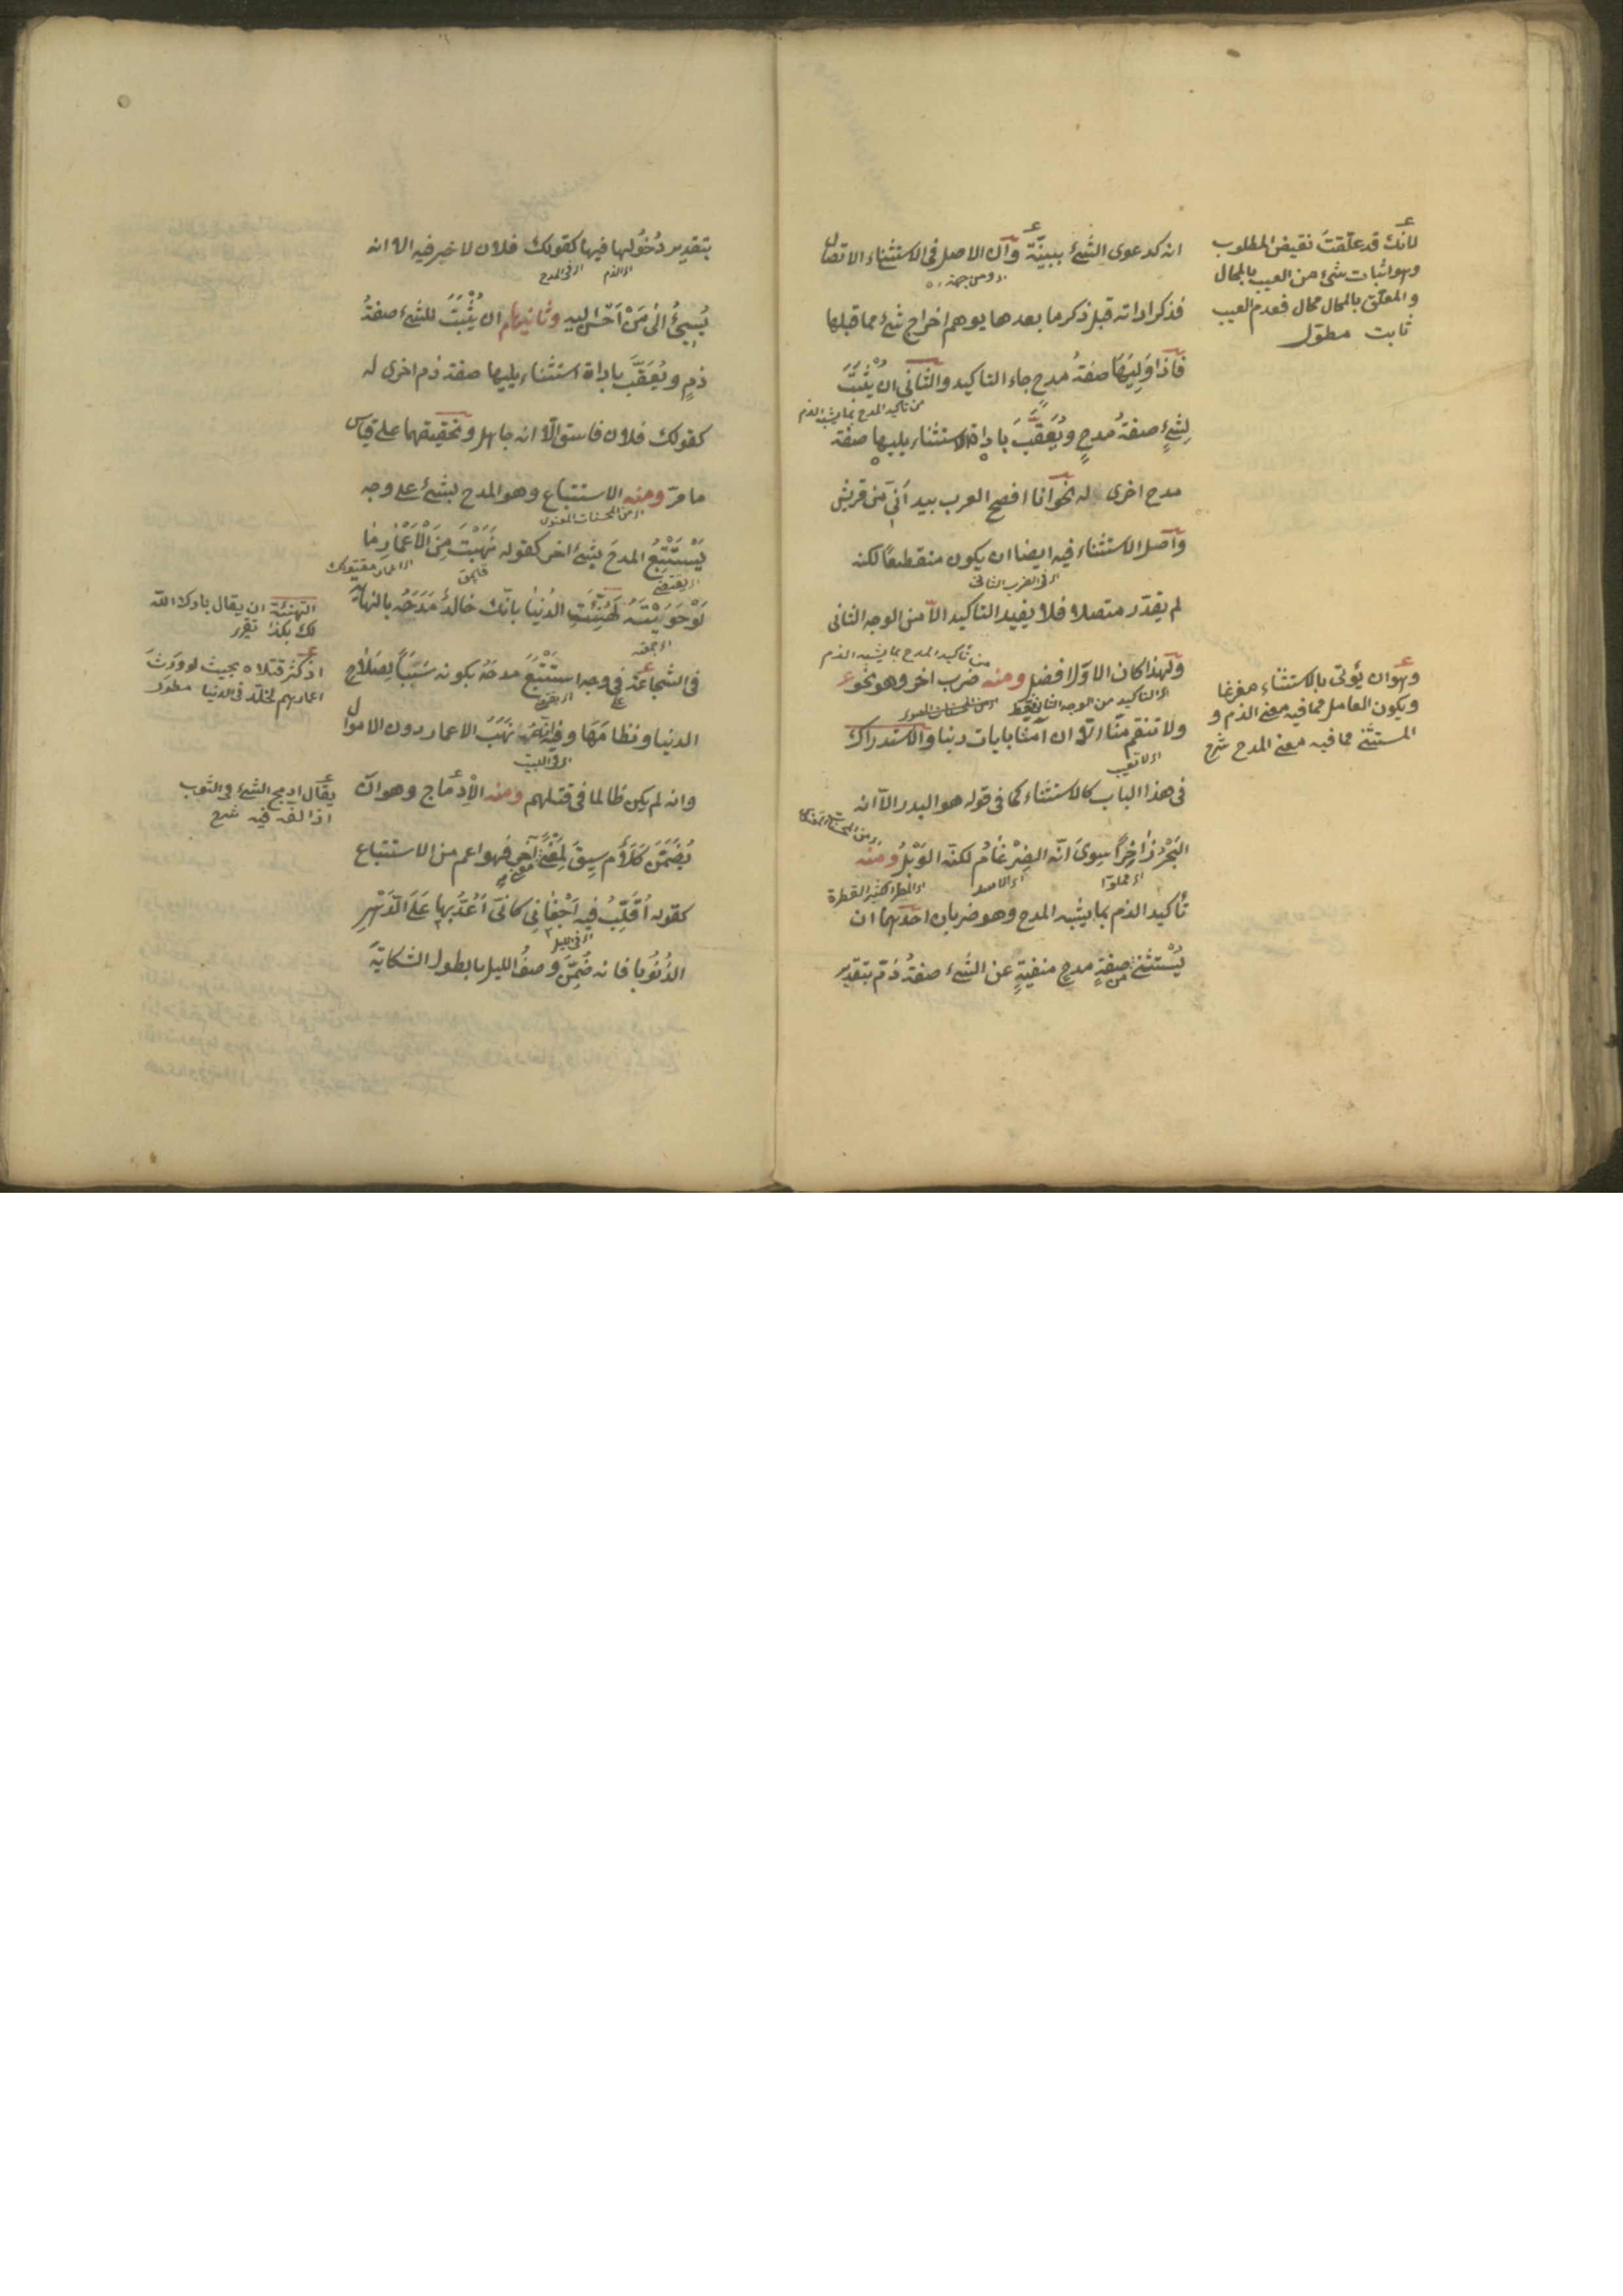 انه كدعوى الشئ ببينة وان الاصل فى الاستثناء الاتصال
فذكر اداته قبل ذكر ما بعدها يوهم اخراج شئ مما قبلها
فاذا وَلِيَهَا صفةُ مدحٍ جاء التاكيد والثانى ان يُثْبَتَ
من تاكيد المدح بما يشبه الذم
لِشئٍ صفةُ مدحٍ ويُعَقَّبَ باداة الاستثناء يليها صفة
مدح اخرى له نحو انا افصح العرب بيد اَنّى من قريش
واصل الاستثناء فيه ايضا ان يكون منقطعًا لكنه
اى فى الضرب الثانى
لم يقدّر متصلا فلا يفيد التاكيد الاّ من الوجه الثانى
من تاكيد المدح بما يشبه الذم
ولهذا كان الاوّل افضل ومنه ضرب اخر وهو نحو
اى التاكيد من الوجه الثانى فقط
ولا تنقم منّا الاّ ان آمنّا بايات ربنا والاستدراك
اى لا تعيب
فى هذا الباب كالاستثناء كما فى قوله هو البدر الاّ انه
البَحْرُ زٰاخِرًا سِوىَ انّه الضِرْغامُ لكنّه الوَبْلُ ومنه
اى مملوّا اى الاسد اى المطر الكثير القطرة
تأكيد الذم بما يشبه المدح وهو ضربان احدهما ان
يُسْتثنى من صفةِ مدحٍ منفيةٍ عن الشئ صفةُ ذمّ بتقدير
لانك قد علّقت نقيض المطلوب
وهو اثبات شئ من العيب بالمحال
والمعلّق بالمحال محال فعدم العيب
ثابت مطوّل
وهو ان يؤتى بالاستثناء مفرغا
ويكون العامل مما فيه معنى الذم و
المستثنى مما فيه معنى المدح شرح
بتقدير دُخُولها فيها كقولك فلان لا خير فيه الا انه
اى الذم اى فى المدح
يُسِئُ الىٰ مَنْ اَحْسَنَ اليه وثانيهما ان يُثْبَتَ للشئ صفةُ
ذمٍ ويُعَقَّبَ باداة استثناء يليها صفة ذم اخرى له
كقولك فلان فاسق الاّ انه جاهل وتحقيقهما على قياس
ما مرّ ومنه الاستتباع وهو المدح بشئ على وجه
اى من المحسنات المعنوى
يَسْتَتْبِعُ المدحَ بشئ اخر كقوله نَهَبْتَ مِنَ الْاَعْمٰارِ مٰا
لَوْ حَوَيْتَهُ لَهُنِّئَتِ الدُنيٰا بانّك خالدُ مَدَحَهُ بالنهاية
فى الشجاعة فى وجه استَتْبَعَ مدحَهُ بكونه سَبَبًا لِصَلاٰح
الدنيا ونظامِهَا وفيه انّهُ نَهَبَ الاعمار دون الاموال
اى فى البيت
وانه لم يكن ظالما فى قتلهم ومنه الْاِدْمٰاج وهو ان
يُضَمَّنَ كَلاٰمٌ سِيقَ لِمَعْنًى معنى آخر فهو اعم من الاستتباع
كقوله اُقَلِّبُ فيه اَجْفٰانِى كانّى اَعُدُّ بها عَلَى الدَّهْرِ
اى فى الليل
الذُنُوبا فانه ضُمِّنَ وصفُ الليل بالطول الشكايةَ
التهنئة ان يقال بارك الله
لك بكذا
اذ كثر قتلاه بحيث لو ورث
اعمارهم لخلّد فى الدنيا مطوّل
يقال ادمج الشئ فى الثوب
اذا لفّه فيه شرح